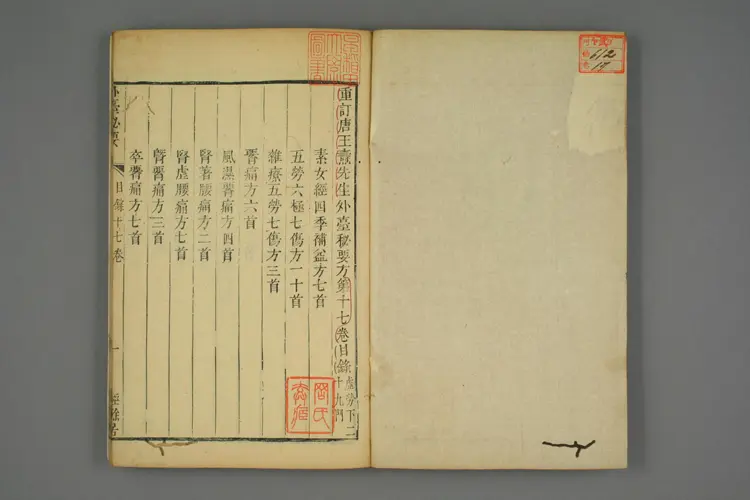 重訂唐王燾先生外臺秘要方第十七卷目錄 虛勞下二十九門
素女經四季補益方七首
五勞六極七傷方一十首
雜療五勞七傷方三首
腎痛方六首
風濕腎痛方四首
腎著腰痛方二首
腎虛腰痛方七首
腎痛方三首
卒腎痛方七首
外臺秘要 目錄十七卷 一
612
17